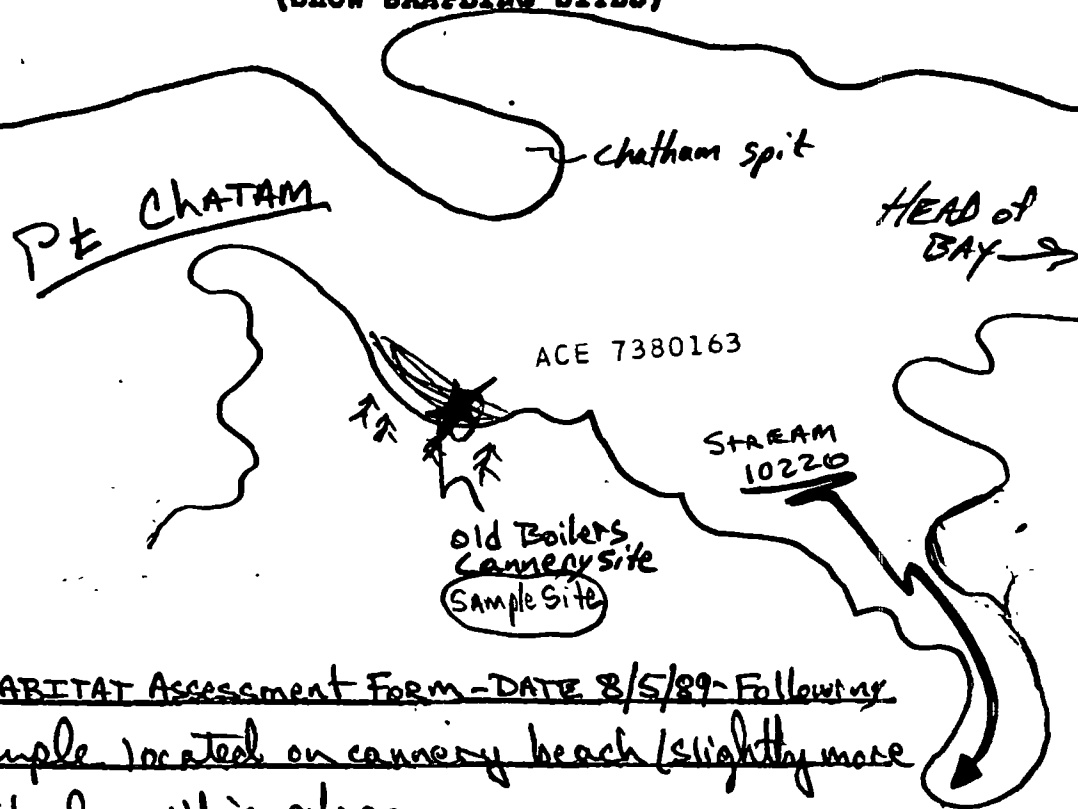 (SHOW SAMPLING SITES)
Chatham spit
Pt ChATAM
HEAD of
BAY
ACE 7380163
StREAM
10220
old Boilers
Cannery site
Sample Site
ABITAT Assessment FoRM-DATE 8/5/89-Following
mple located on cannery beach (slightly more